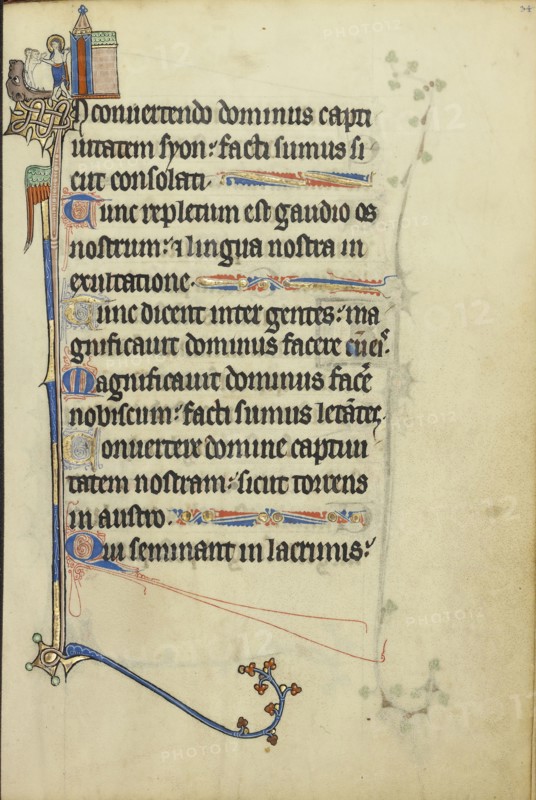 In conuertendo dominus capti
uitatem syon: facti sumus si
cut consolati.
Tunc repletum est gaudio os
nostrum: ⁊ lingua nostra in
exultatione.
Tunc dicent inter gentes: ma
gnificauit dominus facere cū eis.
Magnificauit dominus facē
nobiscum: facti sumus letātes.
Conuertere domine captiui
tatem nostram: sicut torrens
in austro.
Qui seminant in lacrimis: